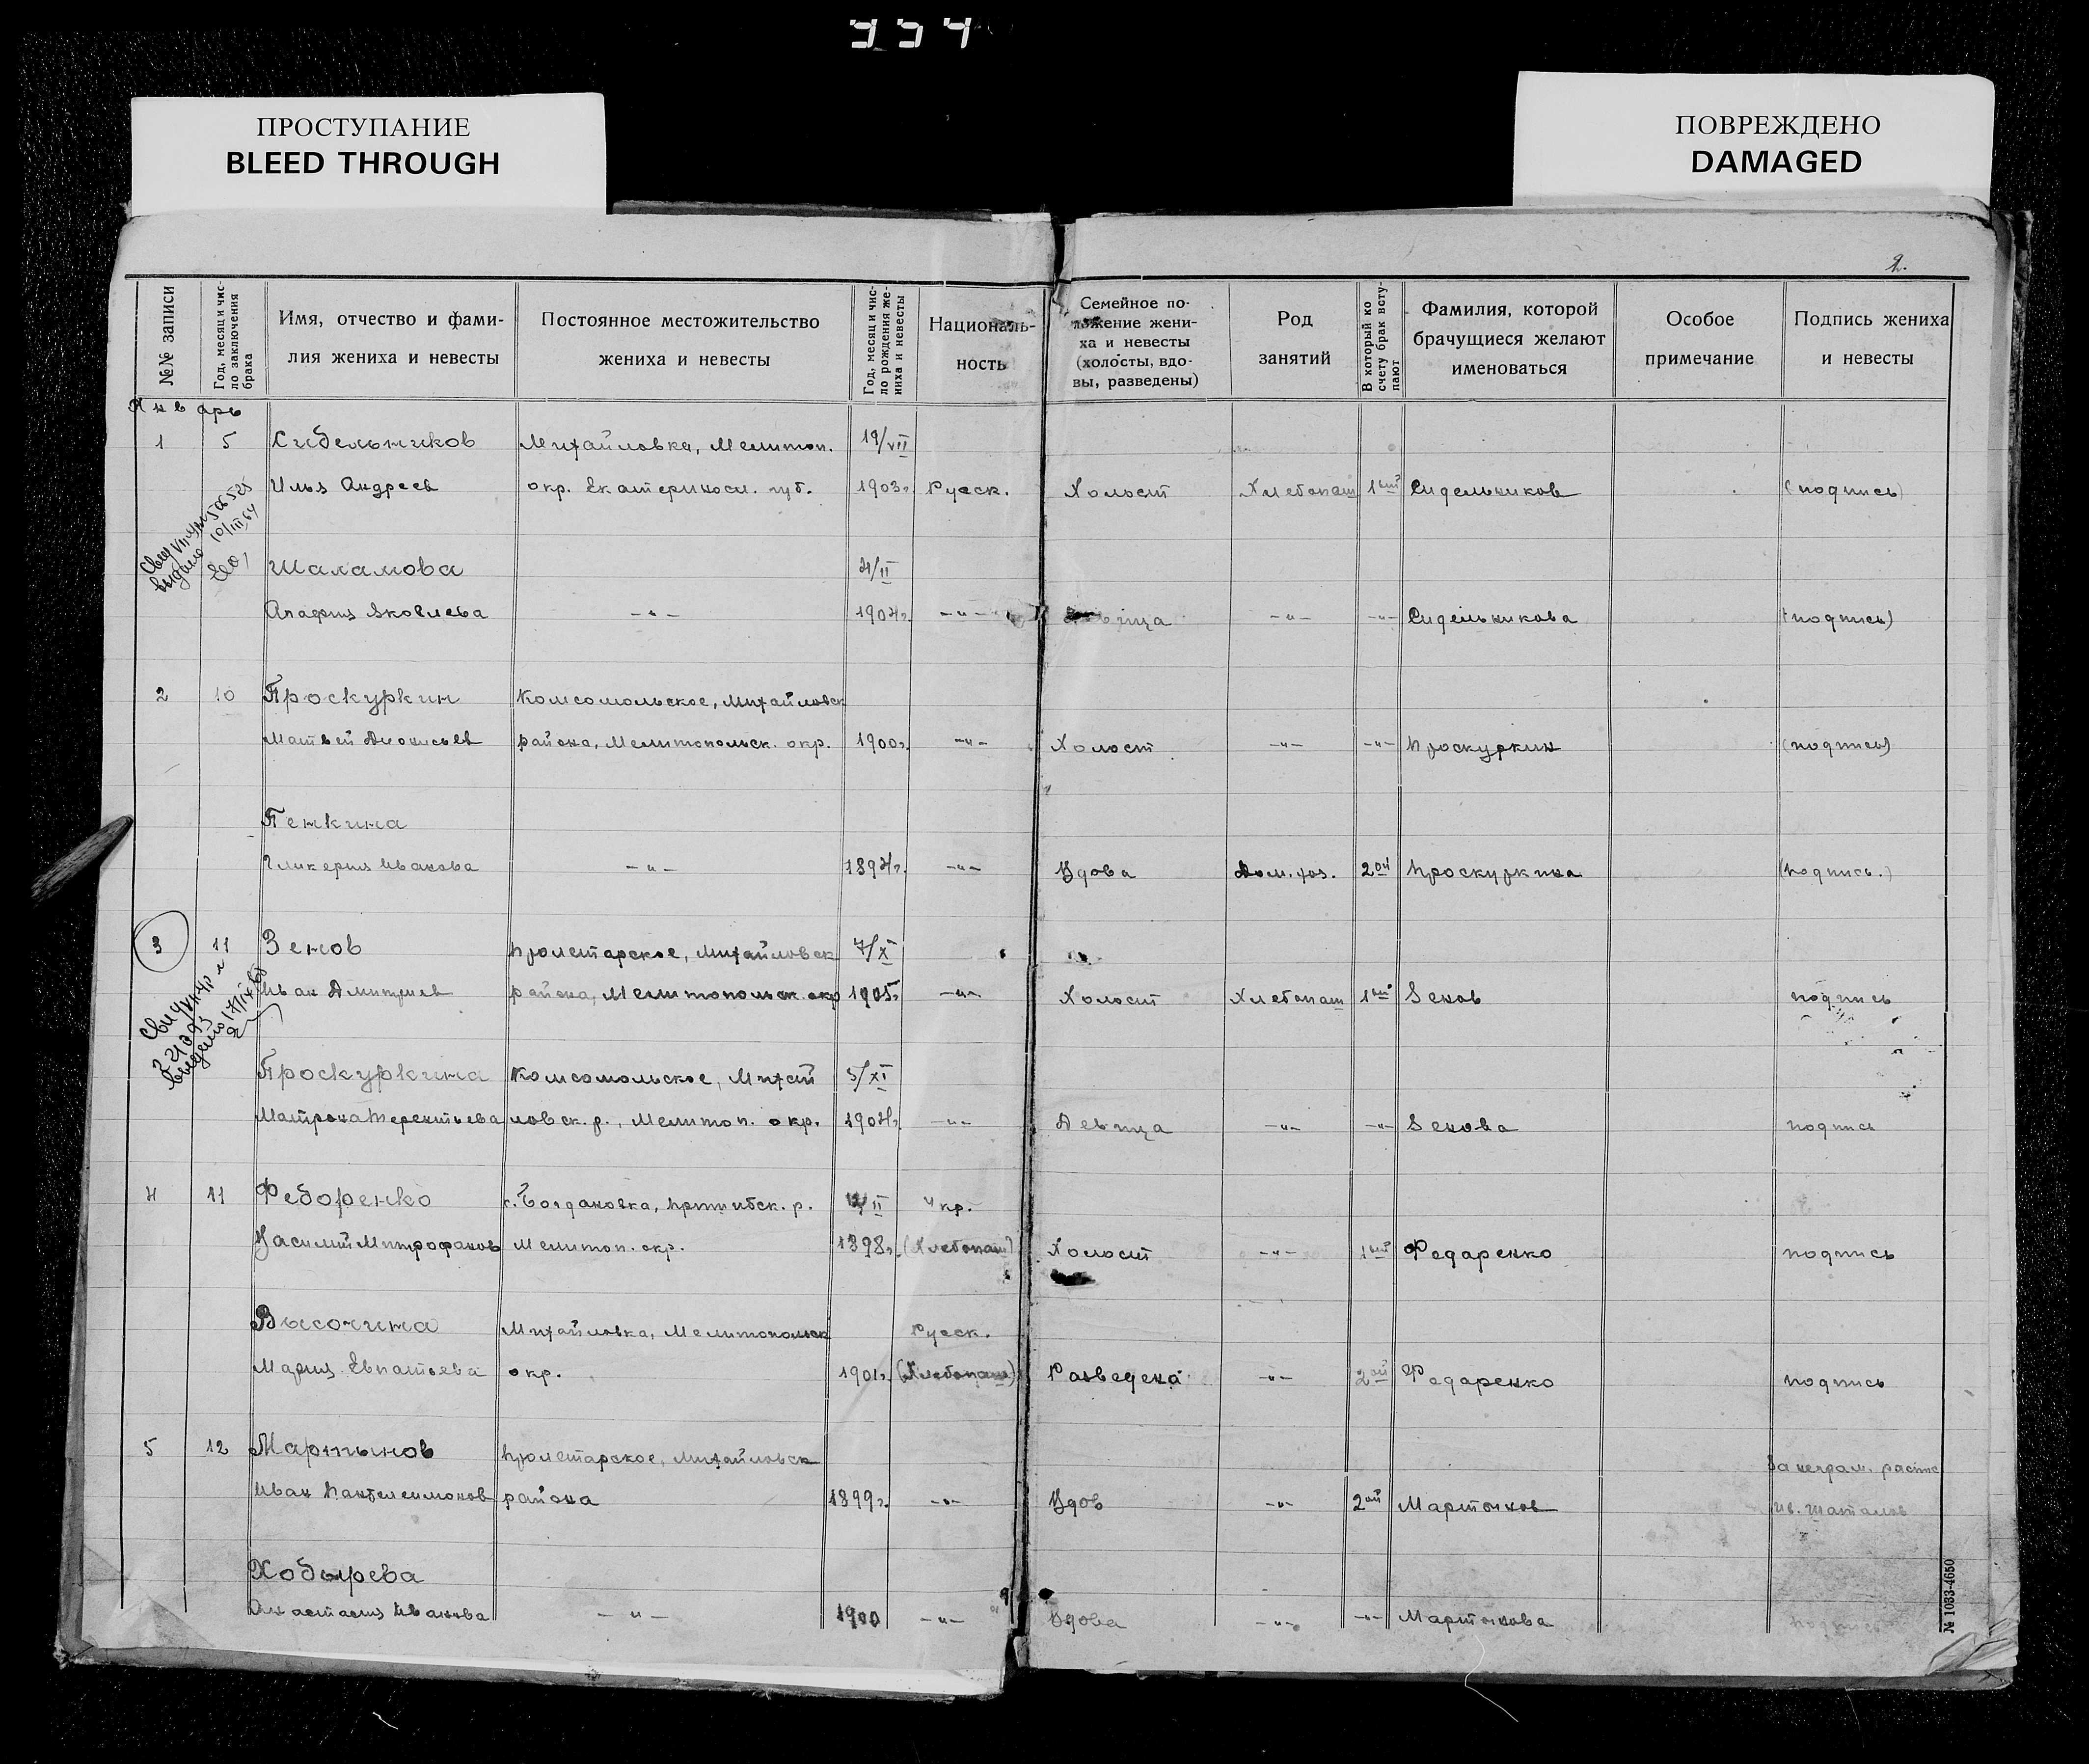 334
ПРОСТУПАНИЕ
BLEED THROUGH
ПОВРЕЖДЕНО
DAMAGED
2.
№№ записи
Год, месяц и чис-
ло заключения
брака
Имя, отчество и фами-
лия жениха и невесты
Постоянное местожительство
жениха и невесты
Год, месяц и чис-
ло рождения же-
ниха и невесты
Националь-
ность
Семейное по-
ложение жени-
ха и невесты
(холосты, вдо-
вы, разведены)
Род
занятий
В который ко
счету брак всту-
пают
Фамилия, которой
брачущиеся желают
именоваться
Особое
примечание
Подпись жениха
и невесты
Январь
1 5 Сидельников Михайловка, Мелитоп. 19/VII
Илья Андреев окр. Екатериносл. губ. 1903г. Русск. Холост Хлебопаш 1ый Сидельников (подпись)
Шаламова 4/II
Агафия Яковлева -"- 1904г. -"- Девица -"- -"- Сидельникова (подпись)
2 10 Проскуркин Комсомольское, Михайловск
Матвей Дионисьев района, Мелитопольск. окр. 1900г. -"- Холост -"- -"- Проскуркин (подпись)
Пенкина
Гликерия Иванова -"- 1894г. -"- Вдова Дом. хоз. 2ой Проскуркина (подпись.)
3 11 Зенов Пролетарское, Михайловск 7/X
Иван Дмитриев района, Мелитопольск. окр 1905г. -"- Холост Хлебопаш 1ый Зенов подпись
Проскуркина Комсомольское, Михай 5/XI
Матрона Терентьева ловск. р., Мелитоп. окр. 1904г. -"- Девица -"- -"- Зенова подпись
4 11 Федоренко с. Богдановка, Пришибск. р. II Укр.
Василий Митрофанов Мелитоп. окр. 1898г. (Хлебопаш) Холост -"- 1ый Федаренко подпись
Высочина Михайловка, Мелитопольск Русск.
Мария Евпатьева окр. 1901г. (Хлебопаш) Разведена -"- 2ой Федаренко подпись
5 12 Мартынов Пролетарское, Михайловск За неграм. распис
Иван Пантелеимонов района 1899г. -"- Вдов -"- 2ой Мартынов Ив. Шаталов
Ходырева
Анастасия Иванова -"- 1900 -"- Вдова -"- -"- Мартынова подпись
№ 1033-4650